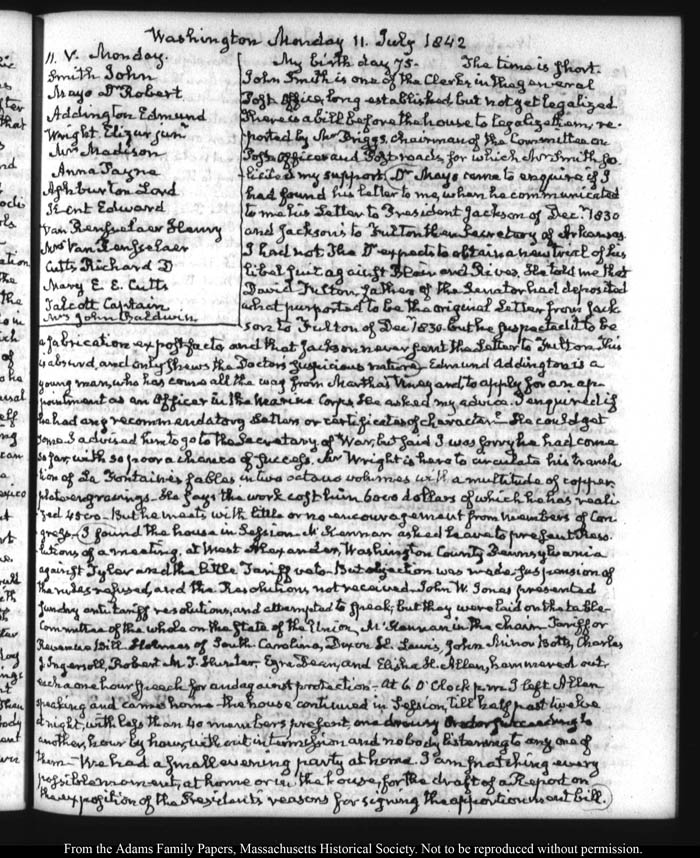 Washington Monday 11. July 1842
11. V. Monday.
Smith John
Mayo Dr. Robert
Addington Edmund
Wright Elizur junr.
Mrs Madison
Anna Payne
Ashburton Lord
Kent Edward
Van Rensselaer Henry
Mrs Van Rensselaer
Cutts Richard D
Mary E. E. Cutts
Talcott Captain
Mrs John Baldwin
My birth day 75- The time is short.
John Smith is one of the Clerks in the general
Post Office, long established but not yet legalized
There is a bill before the house to legalize them, re-
ported by Mr Briggs, Chairman of the Committee on
Post-offices and Post roads, for which Mr Smith so-
licited my support. Dr Mayo came to enquire if I
had found his letter to me, when he communicated
to me his Letter to President Jackson of Decr. 1830
and Jackson's to Fulton then Secretary of Arkansas.
I had not. The Dr expects to obtain a new trial of his
libel suit against Blair and Rives. He told me that
David Fulton, father of the Senator had deposited
what purported to be the original Letter from Jack
son to Fulton of Dec 1830. but he suspected it to be
a fabrication ex post facto and that Jackson never sent the Letter to Fulton. This
is absurd, and only shews the Doctors suspicious nature. Edmund Addington is a
young man, who has come all the way from Martha's Vineyard, to apply for an ap-
pointment as an Officer in the Marine Corps. He asked my advice. I enquired if
he had any recommendatory Letters or certificates of character? He could get
some. I advised him to go to the Secretary of War, but said I was sorry he had come
so far, with so poor a chance of success. Mr Wright is here to circulate his transla
tion of La Fontaine's fables in two octavo volumes with a multitude of copper
plate engravings. He says the work cost him 6000 dollars of which he has reali-
zed 4500. But he meets with little or no encouragement from members of Con
gress. I found the house in Session. Mc.Kennan asked leave to present Reso-
lutions of a meeting, at West Alexander, Washington County Pennsylvania
against Tyler and the little Tariff veto. But objection was made, suspension of
the rules refused, and the Resolutions not received. John W. Jones presented
sundry anti tariff resolutions, and attempted to speak, but they were laid on the table-
Committee of the whole on the state of the Union, Mc.Kennan in the chair. Tariff or
Revenue Bill. Holmes of South Carolina, Dixon H. Lewis, John Minor Botts, Charles
J Ingersoll, Robert M. T. Hunter, Ezra Dean, and Elisha H. Allen, hammered out
each a one hour speech for and against protection- At 6 O'Clock p.m. I left Allen
speaking and came home- the house continued in Session, till half past twelve
at night, with less than 40 members present, one drowsy Orator succeeding to
another, hour by hour, without intermission and nobody listening to any one of
them- We had a small evening party at home. I am snatching every
possible moment, at home or in the house, for the draft of a Report on
the exposition of the President's reasons for signing the apportionment bill.
From the Adams Family Papers, Massachusetts Historical Society. Not to be reproduced without permission.